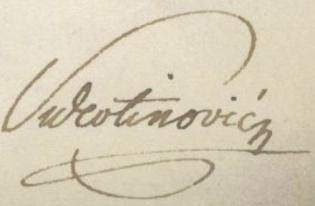 Vukotinović